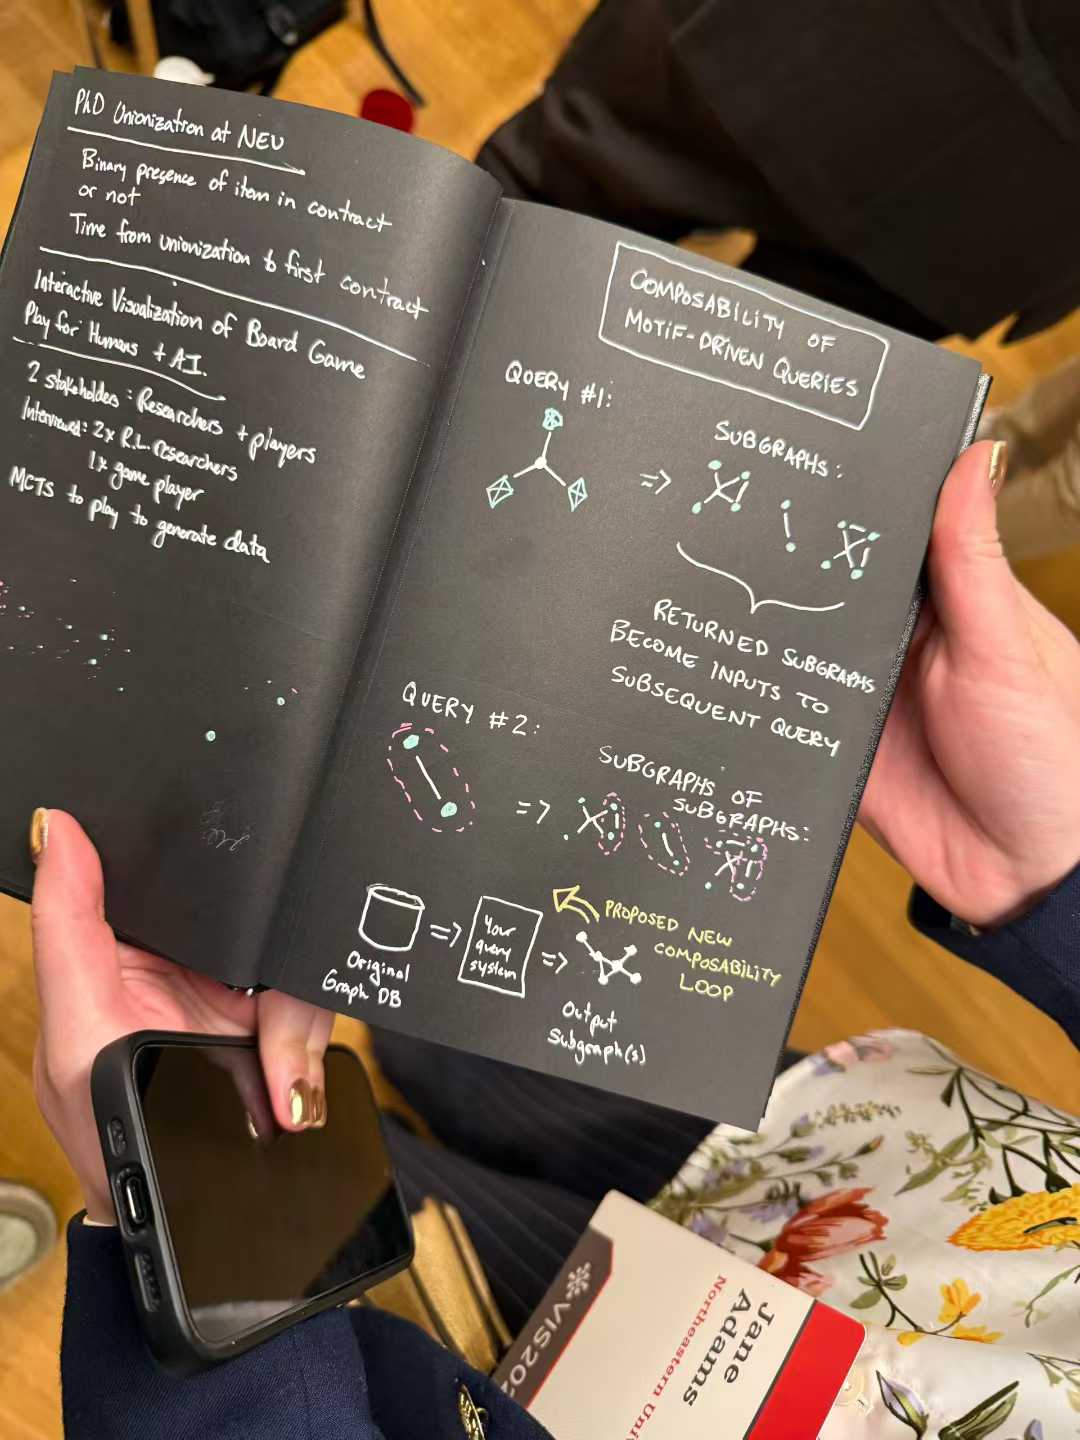 PhD Unionization at NEU
Binary presence of item in contract
or not
Time from unionization to first contract
Interactive Visualization of Board Game
Play for Humans + A.I.
2 stakeholders: Researchers + players
Interviewed: 2x R.L. researchers
1x game player
MCTS to play to generate data
COMPOSABILITY OF
MOTIF-DRIVEN QUERIES
QUERY #1:
=>
SUBGRAPHS:
RETURNED SUBGRAPHS
BECOME INPUTS TO
SUBSEQUENT QUERY
QUERY #2:
=>
SUBGRAPHS OF
SUBGRAPHS:
Original
Graph DB
=>
Your
query
system
=>
Output
Subgraph(s)
PROPOSED NEW
COMPOSABILITY
LOOP
VIS202
Jane
Adams
Northeastern Uni